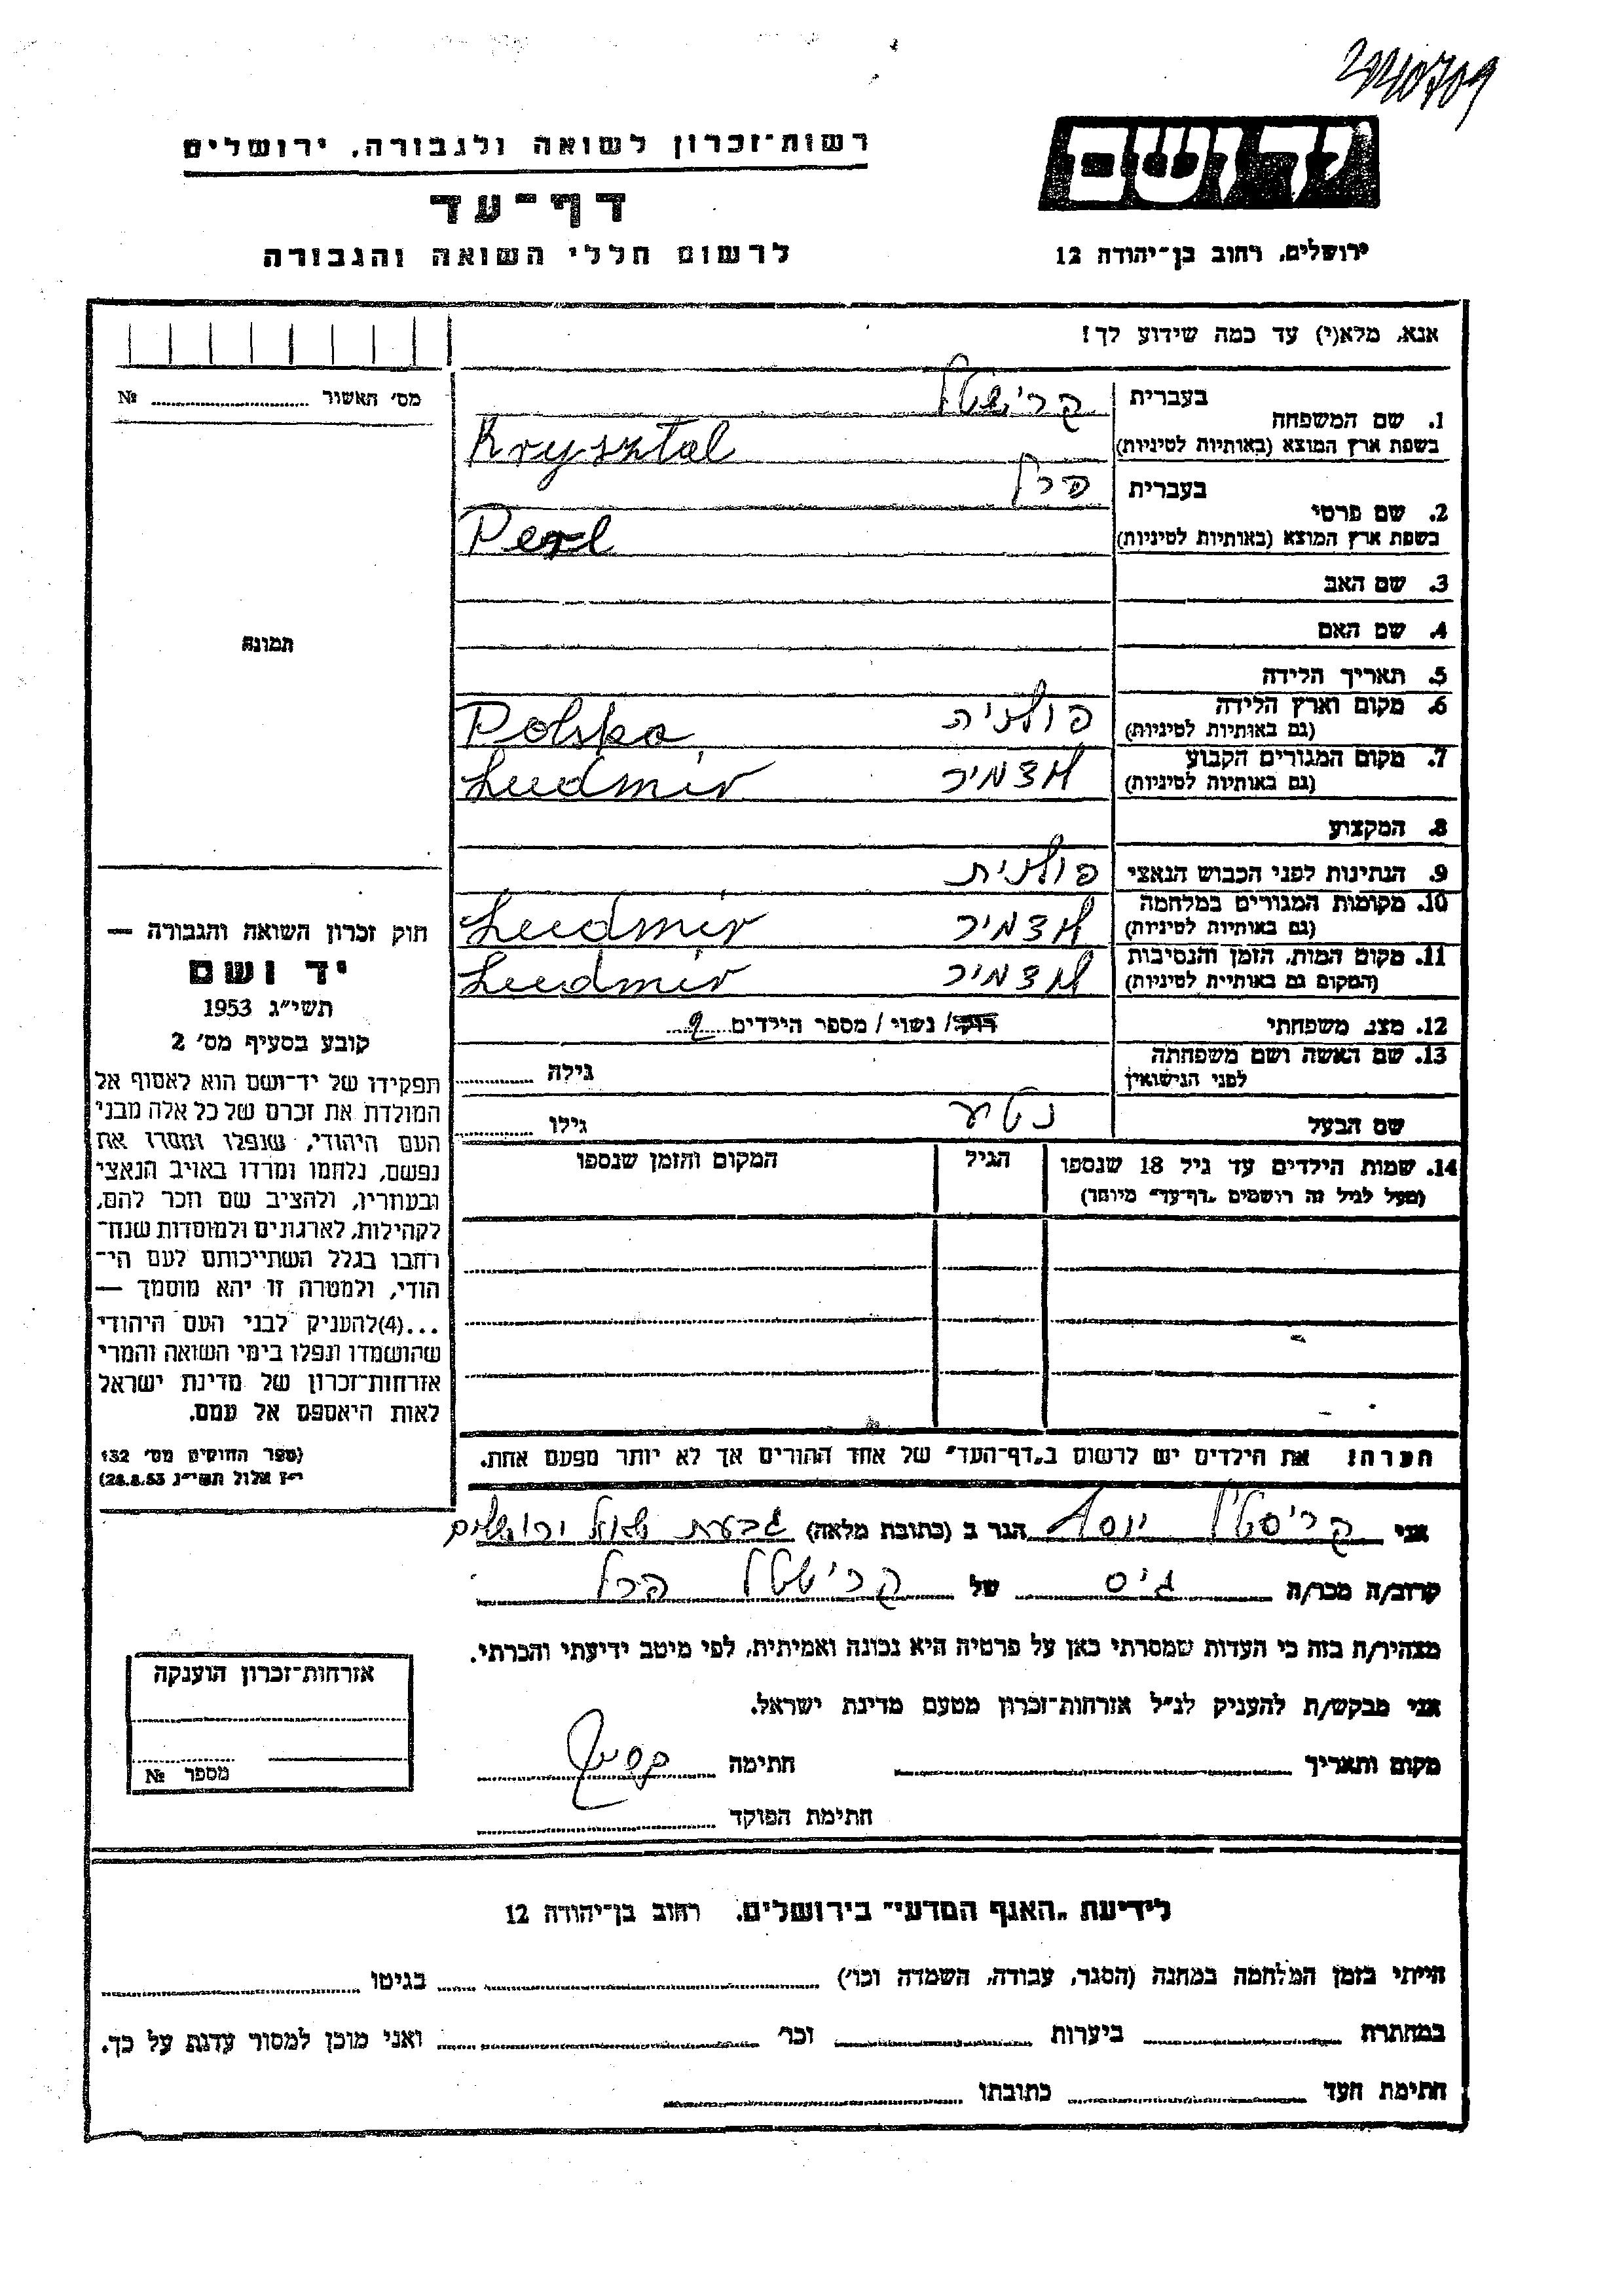 רשות־זכרון לשואה ולגבורה, ירושלים
דף־עד
לרשום חללי השואה והגבורה
יד ושם
ירושלים, רחוב בן־יהודה 12
אנא, מלא(י) עד כמה שידוע לך!
מס׳ האשור № 
1. שם המשפחה בעברית קרישטל
בשפת ארץ המוצא (באותיות לטיניות) Krysztal
2. שם פרטי בעברית פרל
בשפת ארץ המוצא (באותיות לטיניות) Perl
3. שם האב
4. שם האם
תמונה
5. תאריך הלידה
6. מקום וארץ הלידה (גם באותיות לטיניות) פולניה Polska
7. מקום המגורים הקבוע (גם באותיות לטיניות) לודמיר Ludmir
8. המקצוע
9. הנתינות לפני הכבוש הנאצי פולנית
10. מקומות המגורים במלחמה (גם באותיות לטיניות) לודמיר Ludmir
11. מקום המות, הזמן והנסיבות (המקום גם באותיות לטיניות) לודמיר Ludmir
12. מצב משפחתי רוק/ נשוי / מספר הילדים 2
13. שם האשה ושם משפחתה לפני הנישואין גילה
שם הבעל נטע גילו
14. שמות הילדים עד גיל 18 שנספו הגיל המקום והזמן שנספו
(מעל לגיל זה רושמים „דף־עד״ מיוחד)
חוק זכרון השואה והגבורה —
יד ושם
תשי״ג 1953
קובע בסעיף מס׳ 2
תפקידו של יד־ושם הוא לאסוף אל
המולדת את זכרם של כל אלה מבני
העם היהודי, שנפלו ומסרו את
נפשם, נלחמו ומרדו באויב הנאצי
ובעוזריו, ולהציב שם וזכר להם,
לקהילות, לארגונים ולמוסדות שנח־
רבו בגלל השתייכותם לעם הי־
הודי, ולמטרה זו יהא מוסמך —
...(4)להעניק לבני העם היהודי
שהושמדו ונפלו בימי השואה והמרי
אזרחות־זכרון של מדינת ישראל
לאות היאספם אל עמם.
(ספר החוקים מס׳ 132
י״ז אלול תשי״ג 28.8.53)
הערה: את הילדים יש לרשום ב„דף־העד״ של אחד ההורים אך לא יותר מפעם אחת.
אני קריסטל יוסף הגר ב (כתובת מלאה) גבעת שאול ירושלים
קרוב/ה מכר/ה גיס של קרישטל פרל
מצהיר/ה בזה כי העדות שמסרתי כאן על פרטיה היא נכונה ואמיתית, לפי מיטב ידיעתי והכרתי.
אני מבקש/ת להעניק לנ״ל אזרחות־זכרון מטעם מדינת ישראל.
מקום ותאריך חתימה
חתימת הפוקד
אזרחות־זכרון הוענקה
מספר №
לידיעת „האגף המדעי״ בירושלים, רחוב בן־יהודה 12
הייתי בזמן המלחמה במחנה (הסגר, עבודה, השמדה וכו׳) בגיטו
במחתרת ביערות וכו׳ ואני מוכן למסור עדות על כך.
חתימת העד כתובתו